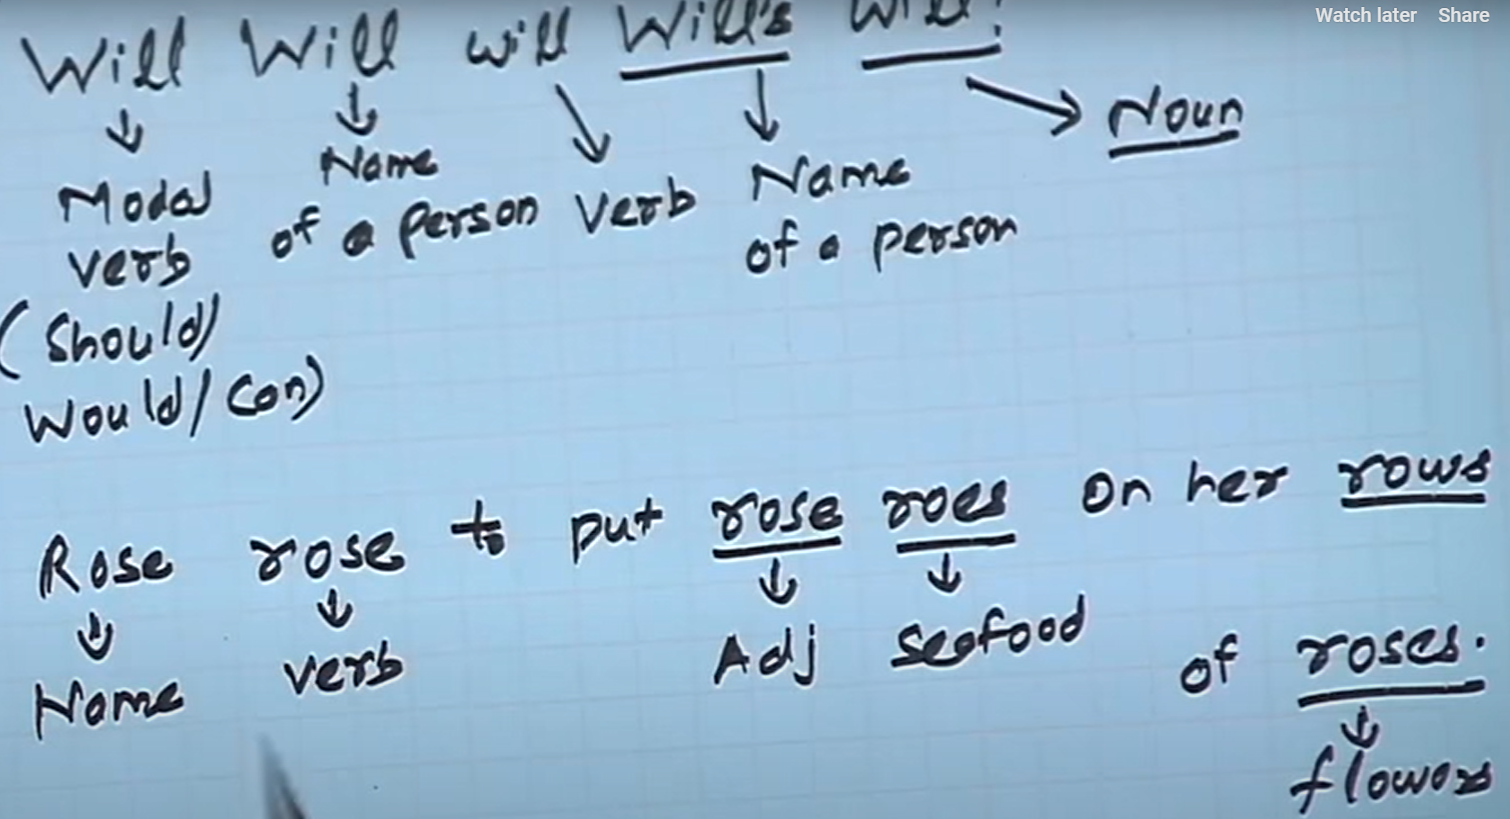 Watch later Share
Will Will will Will's will?
Modal verb (Should/ Would/Can)
Name of a person
Verb
Name of a person
Noun
Rose rose to put rose roes on her rows of roses.
Name
verb
Adj
seafood
flowers